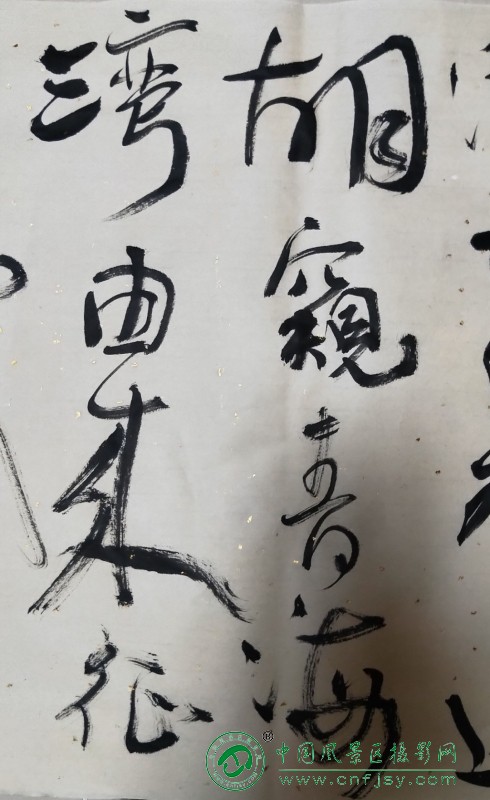 胡窥青海
湾由来征
中国风景区摄影网
®
www.cnfjsy.com